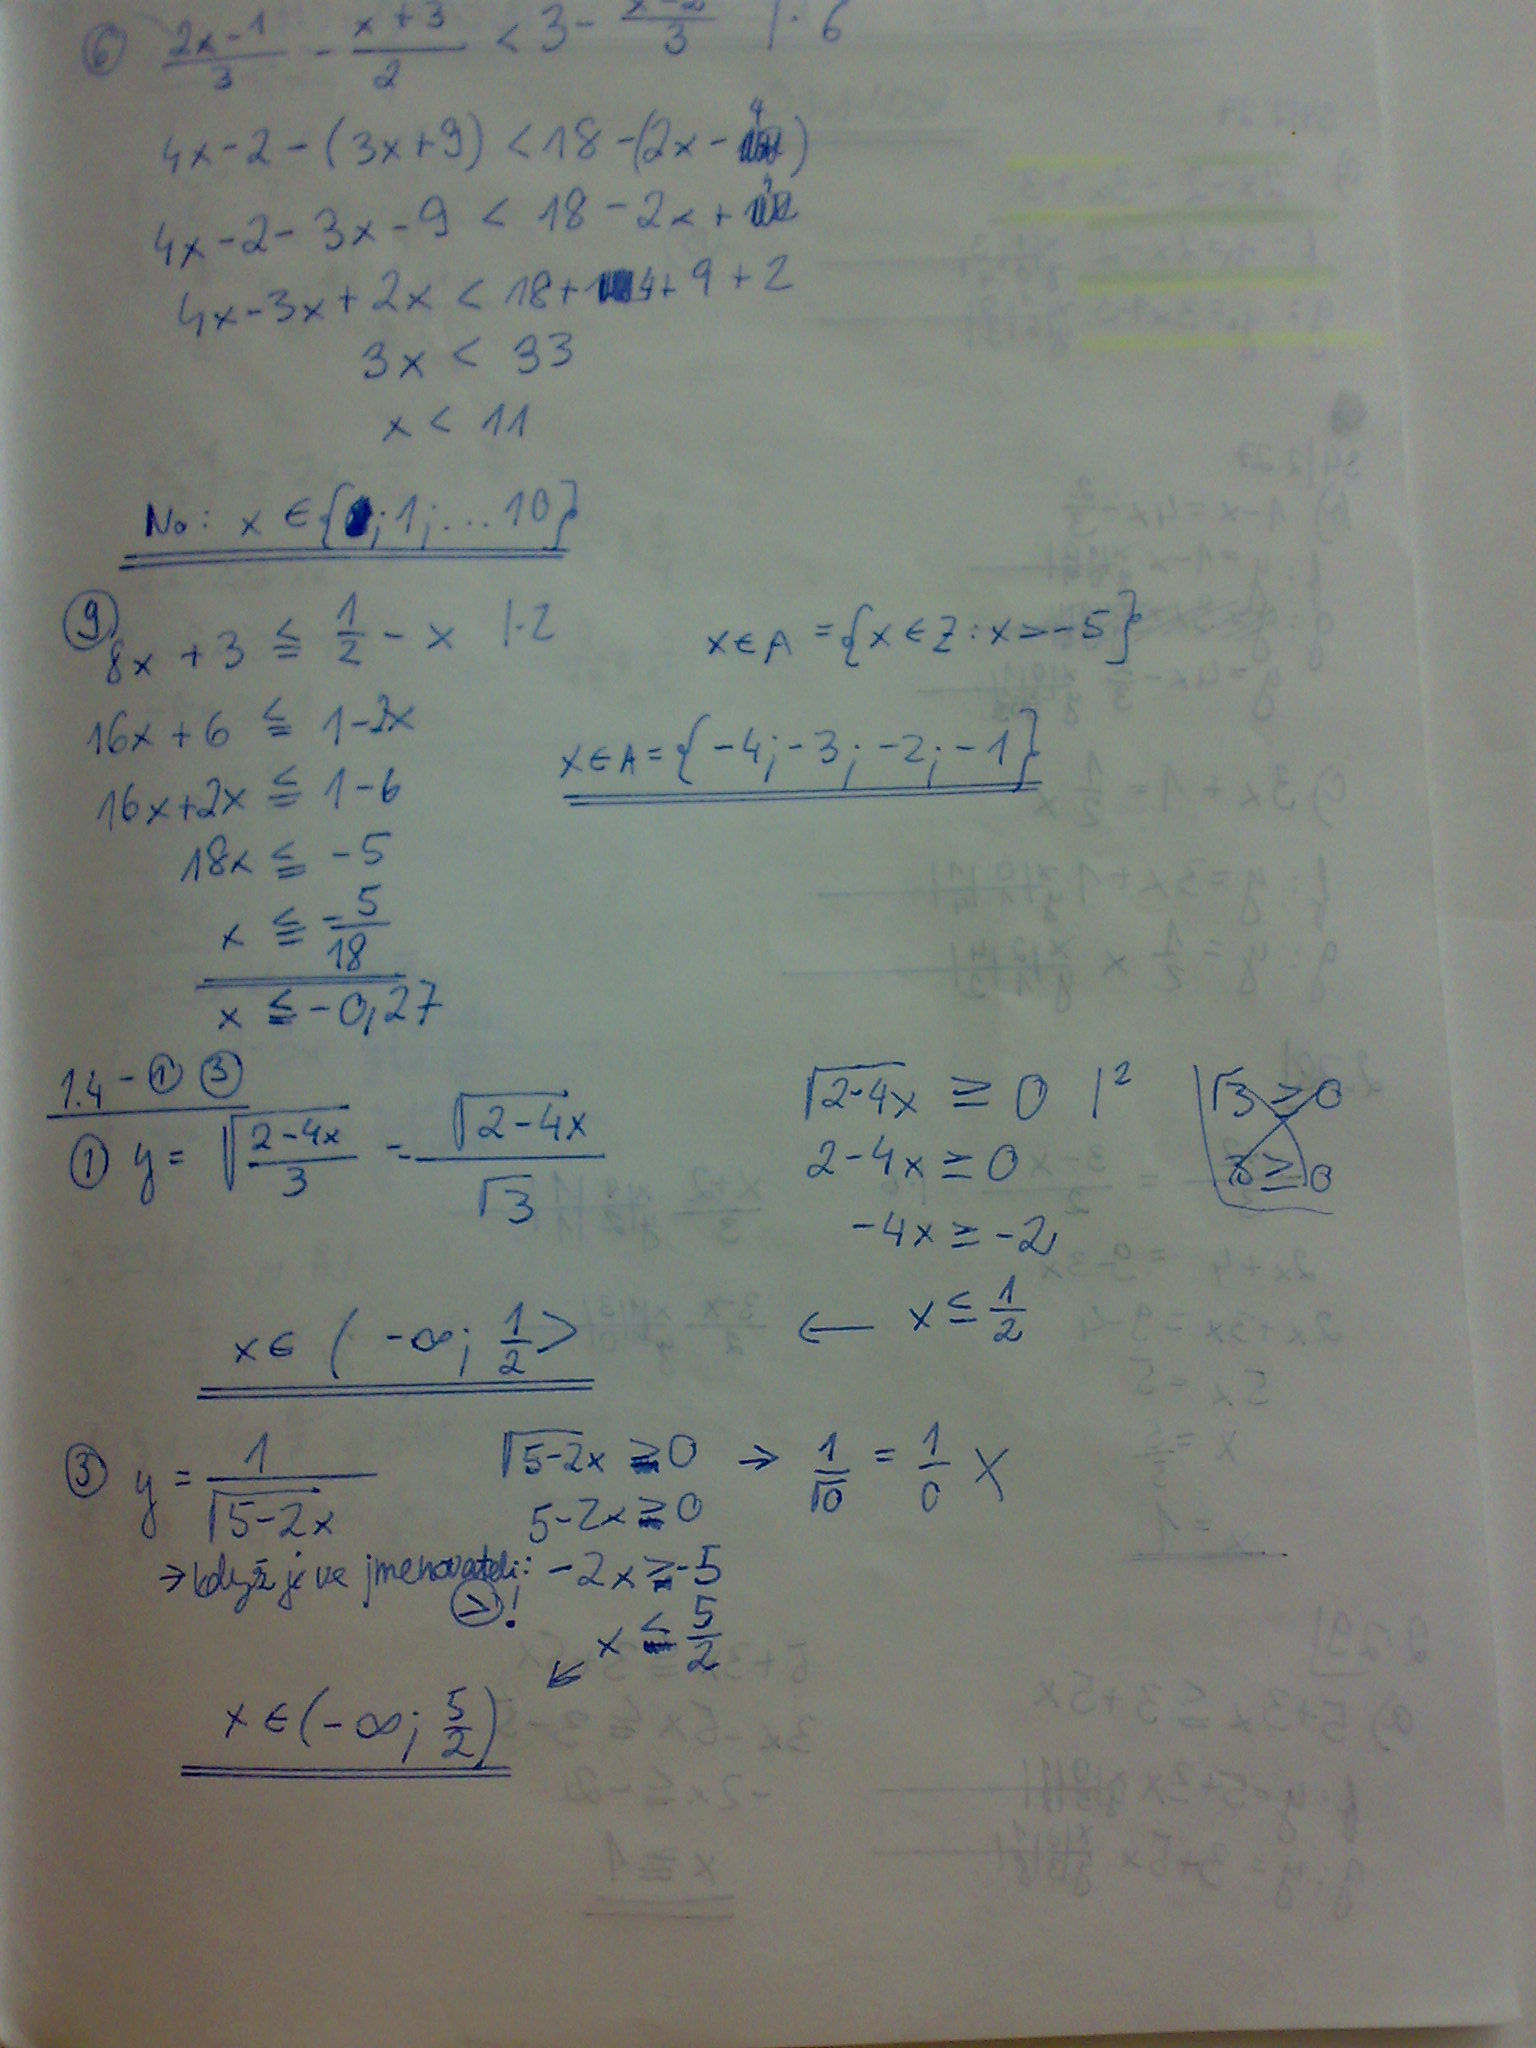 ⑥ (2x-1)/3 - (x+3)/2 < 3 - (x-2)/3 |·6
4x-2-(3x+9) < 18-(2x-4)
4x-2-3x-9 < 18-2x+4
4x-3x+2x < 18+4+9+2
3x < 33
x < 11
N₀: x ∈ {0; 1; ... 10}
⑨
8x+3 ≦ 1/2 - x |·2
x∈A = {x∈Z: x>-5}
16x+6 ≦ 1-2x
x∈A = {-4; -3; -2; -1}
16x+2x ≦ 1-6
18x ≦ -5
x ≦ -5/18
x ≦ -0,27
1.4 - ① ③
① y = √((2-4x)/3) = √(2-4x)/√3
√(2-4x) ≥ 0 |²
√3 ≥ 0
2-4x ≥ 0
3 ≥ 0
-4x ≥ -2
x ≤ 1/2
x∈ (-∞; 1/2> ←
③ y = 1/√(5-2x)
√(5-2x) ≥ 0 → 1/√0 = 1/0 X
5-2x ≥ 0
→ když je ve jmenovateli: >!
-2x ≥ -5
x ≤ 5/2
x∈(-∞; 5/2)